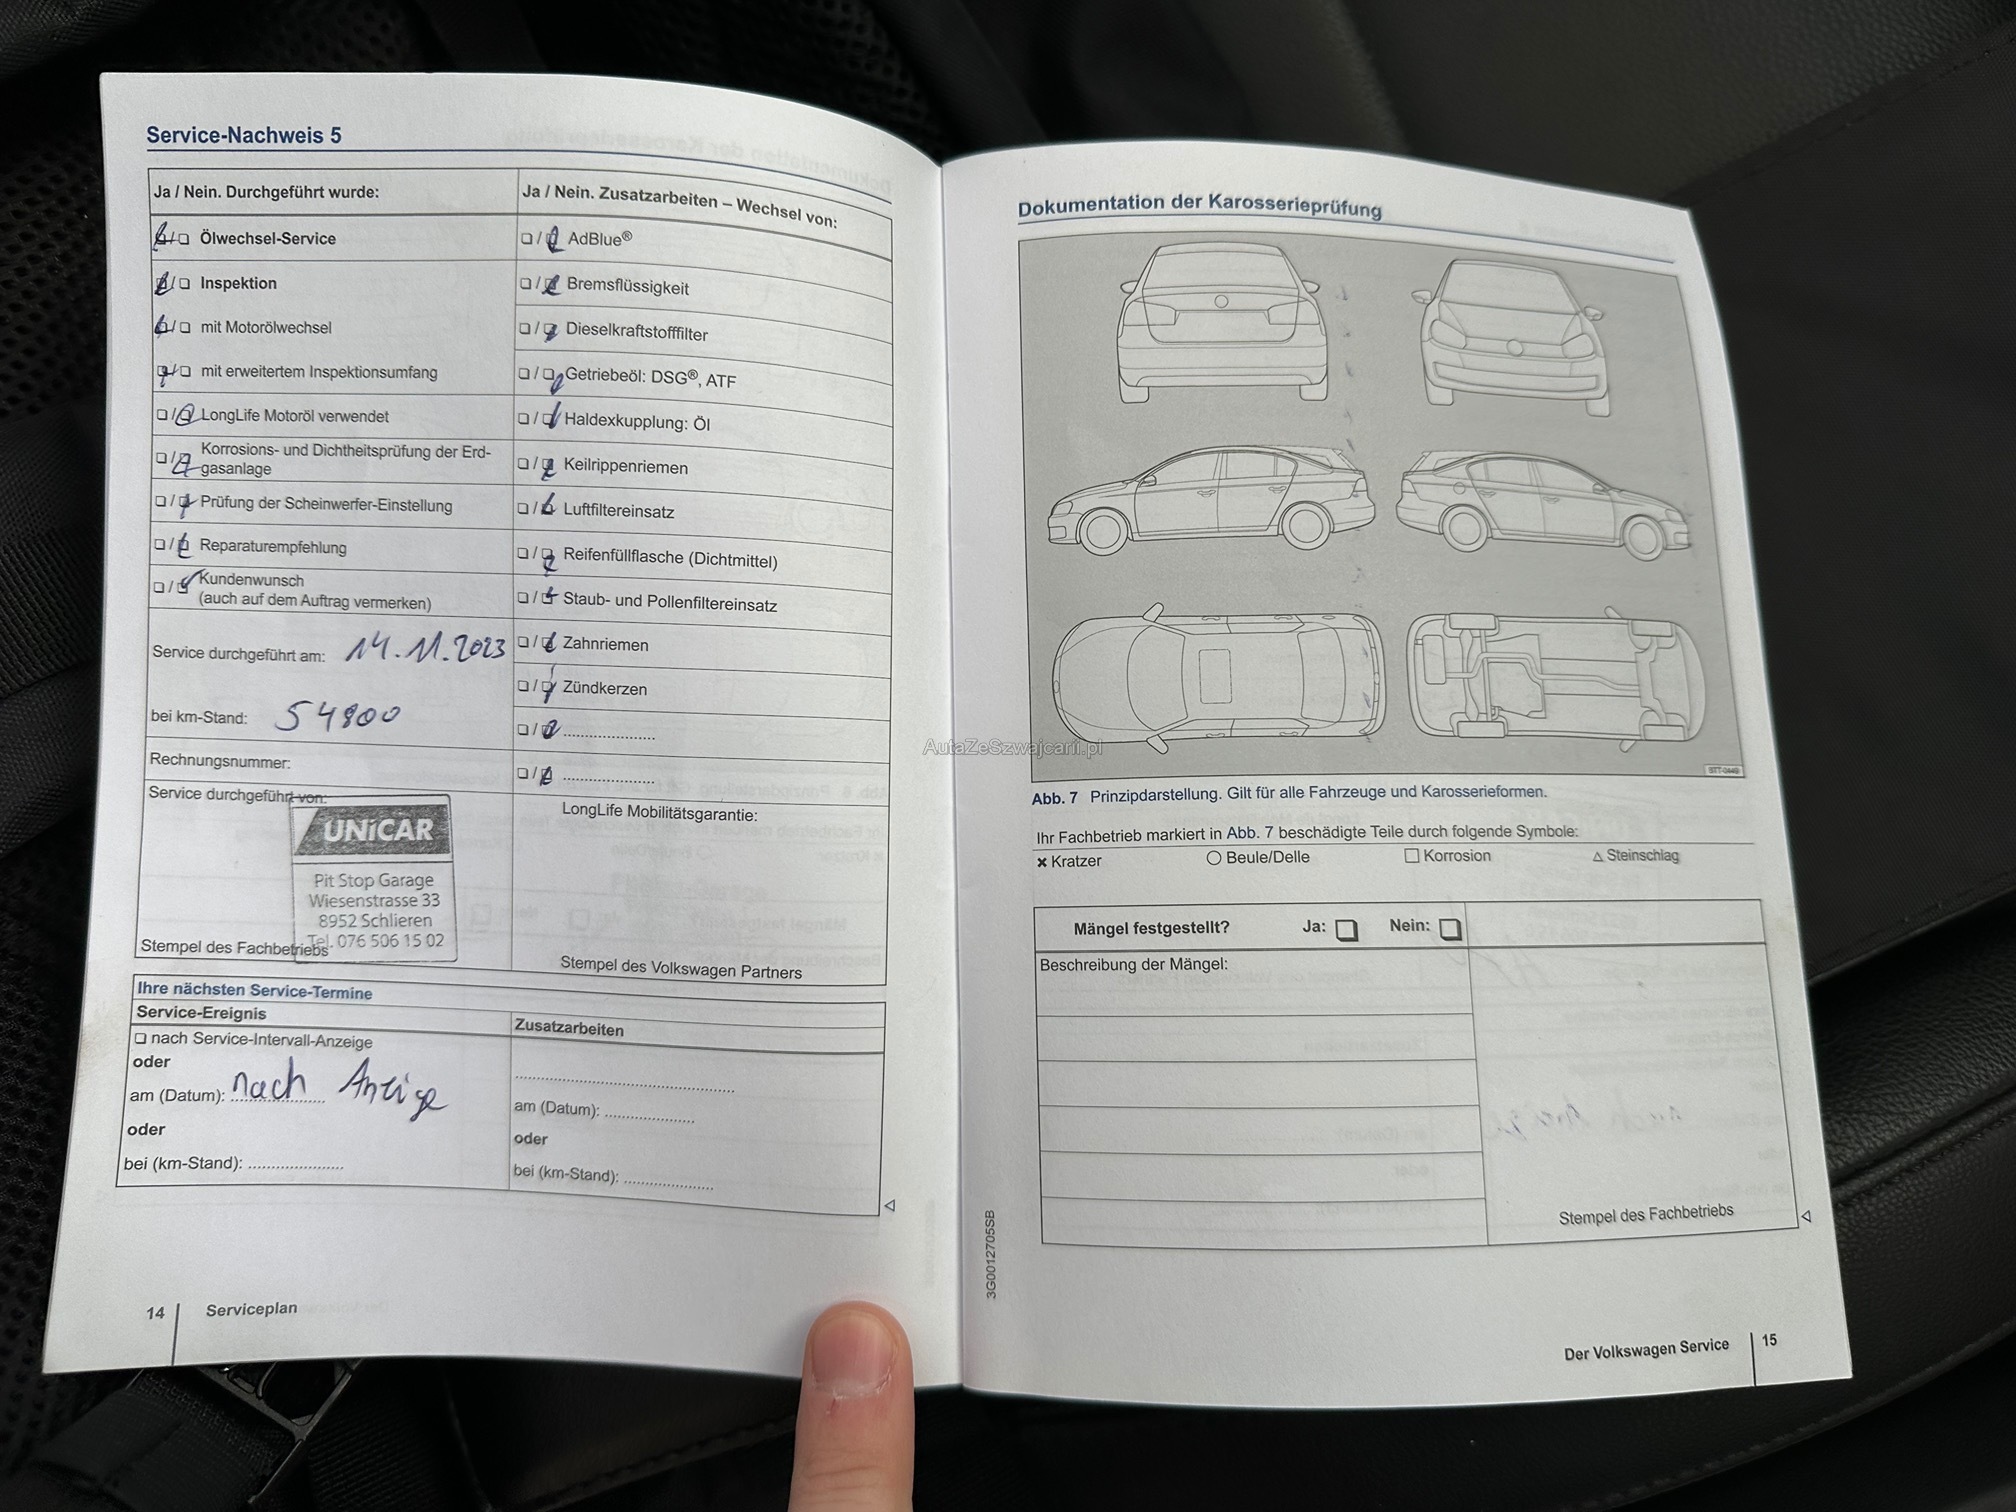 Service-Nachweis 5
Ja / Nein. Durchgeführt wurde:
❏/❏ Ölwechsel-Service
❏/❏ Inspektion
❏/❏ mit Motorölwechsel
❏/❏ mit erweitertem Inspektionsumfang
❏/❏ LongLife Motoröl verwendet
❏/❏ Korrosions- und Dichtheitsprüfung der Erd-
gasanlage
❏/❏ Prüfung der Scheinwerfer-Einstellung
❏/❏ Reparaturempfehlung
❏/❏ Kundenwunsch
(auch auf dem Auftrag vermerken)
Service durchgeführt am: 14.11.2023
bei km-Stand: 54800
Rechnungsnummer:
Service durchgeführt von:
UNiCAR
Pit Stop Garage
Wiesenstrasse 33
8952 Schlieren
Tel. 076 506 15 02
Stempel des Fachbetriebs
Ja / Nein. Zusatzarbeiten – Wechsel von:
❏/❏ AdBlue®
❏/❏ Bremsflüssigkeit
❏/❏ Dieselkraftstofffilter
❏/❏ Getriebeöl: DSG®, ATF
❏/❏ Haldexkupplung: Öl
❏/❏ Keilrippenriemen
❏/❏ Luftfiltereinsatz
❏/❏ Reifenfüllflasche (Dichtmittel)
❏/❏ Staub- und Pollenfiltereinsatz
❏/❏ Zahnriemen
❏/❏ Zündkerzen
❏/❏ ....................
❏/❏ ....................
LongLife Mobilitätsgarantie:
Stempel des Volkswagen Partners
Ihre nächsten Service-Termine
Service-Ereignis
❏ nach Service-Intervall-Anzeige
oder
am (Datum): nach Anzeige
oder
bei (km-Stand): ....................
Zusatzarbeiten
..............................................
am (Datum): ....................
oder
bei (km-Stand): ....................
14 Serviceplan
Dokumentation der Karosserieprüfung
BTT-0449
AutaZeSzwajcarii.pl
Abb. 7 Prinzipdarstellung. Gilt für alle Fahrzeuge und Karosserieformen.
Ihr Fachbetrieb markiert in Abb. 7 beschädigte Teile durch folgende Symbole:
× Kratzer ○ Beule/Delle □ Korrosion △ Steinschlag
Mängel festgestellt? Ja: ❏ Nein: ❏
Beschreibung der Mängel:
Stempel des Fachbetriebs
3G0012705SB
Der Volkswagen Service 15